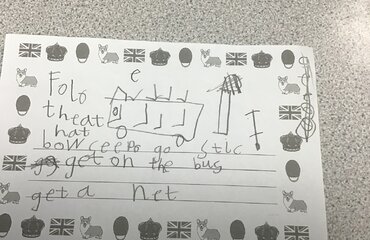 Folo e
theat
hat
bow ceep go stlc
get on the bus
get a net